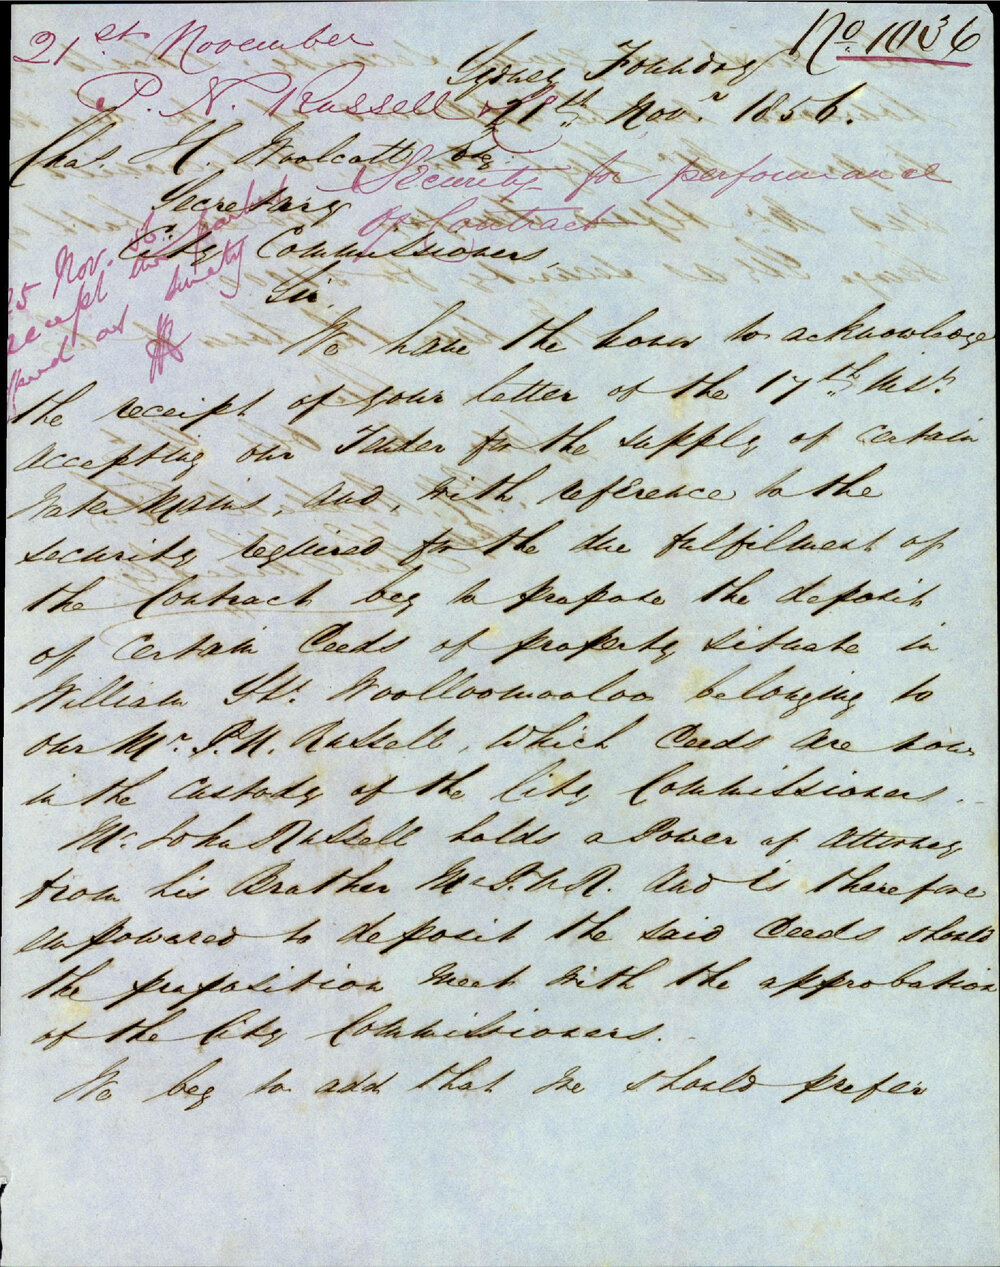 No. 1036
21st November
P. N. Russell & Co
Security for performance
of Contract
25 Nov. 56
accept
surety
Sydney Foundry
21st Novr. 1856.
Chas. H. Woolcott Esq
Secretary
City Commissioners,
Sir,
We have the honor to acknowledge
the receipt of your letter of the 17th Inst.
accepting our Tender for the supply of certain
Water Mains, and, with reference to the
security required for the due fulfilment of
the Contract beg to propose the deposit
of certain Deeds of property situate in
William St. Woolloomooloo belonging to
our Mr. P. N. Russell, which Deeds are now
in the custody of the City Commissioners.
Mr. John Russell holds a Power of Attorney
from his Brother Mr P. N. R. and is therefore
empowered to deposit the said Deeds should
the proposition meet with the approbation
of the City Commissioners.
We beg to add that we should prefer